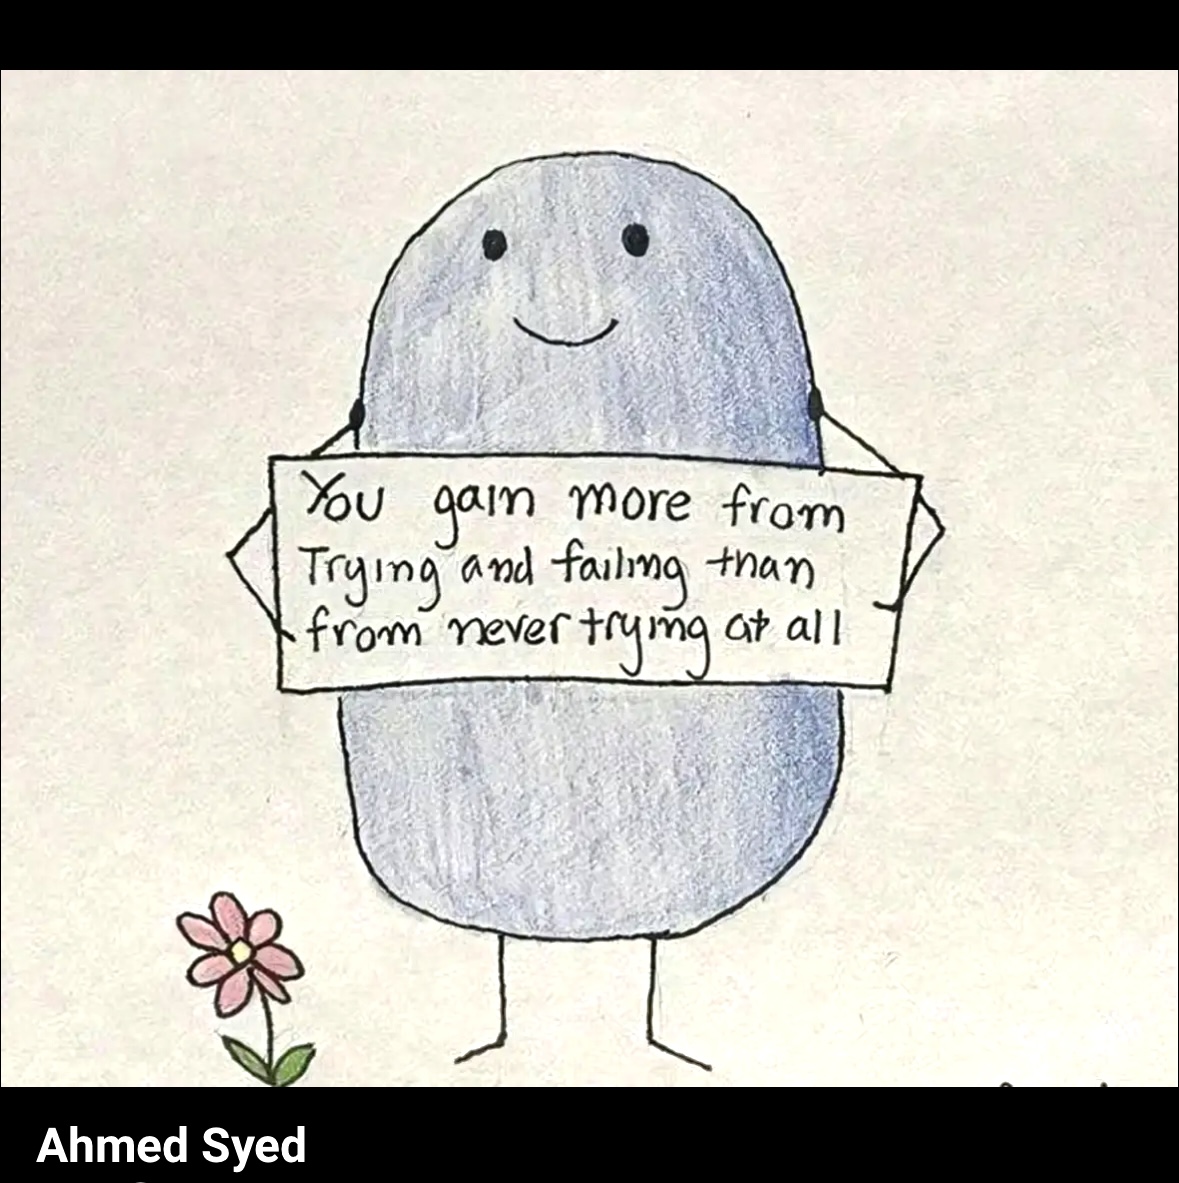 You gain more from
Trying and failing than
from never trying at all
Ahmed Syed